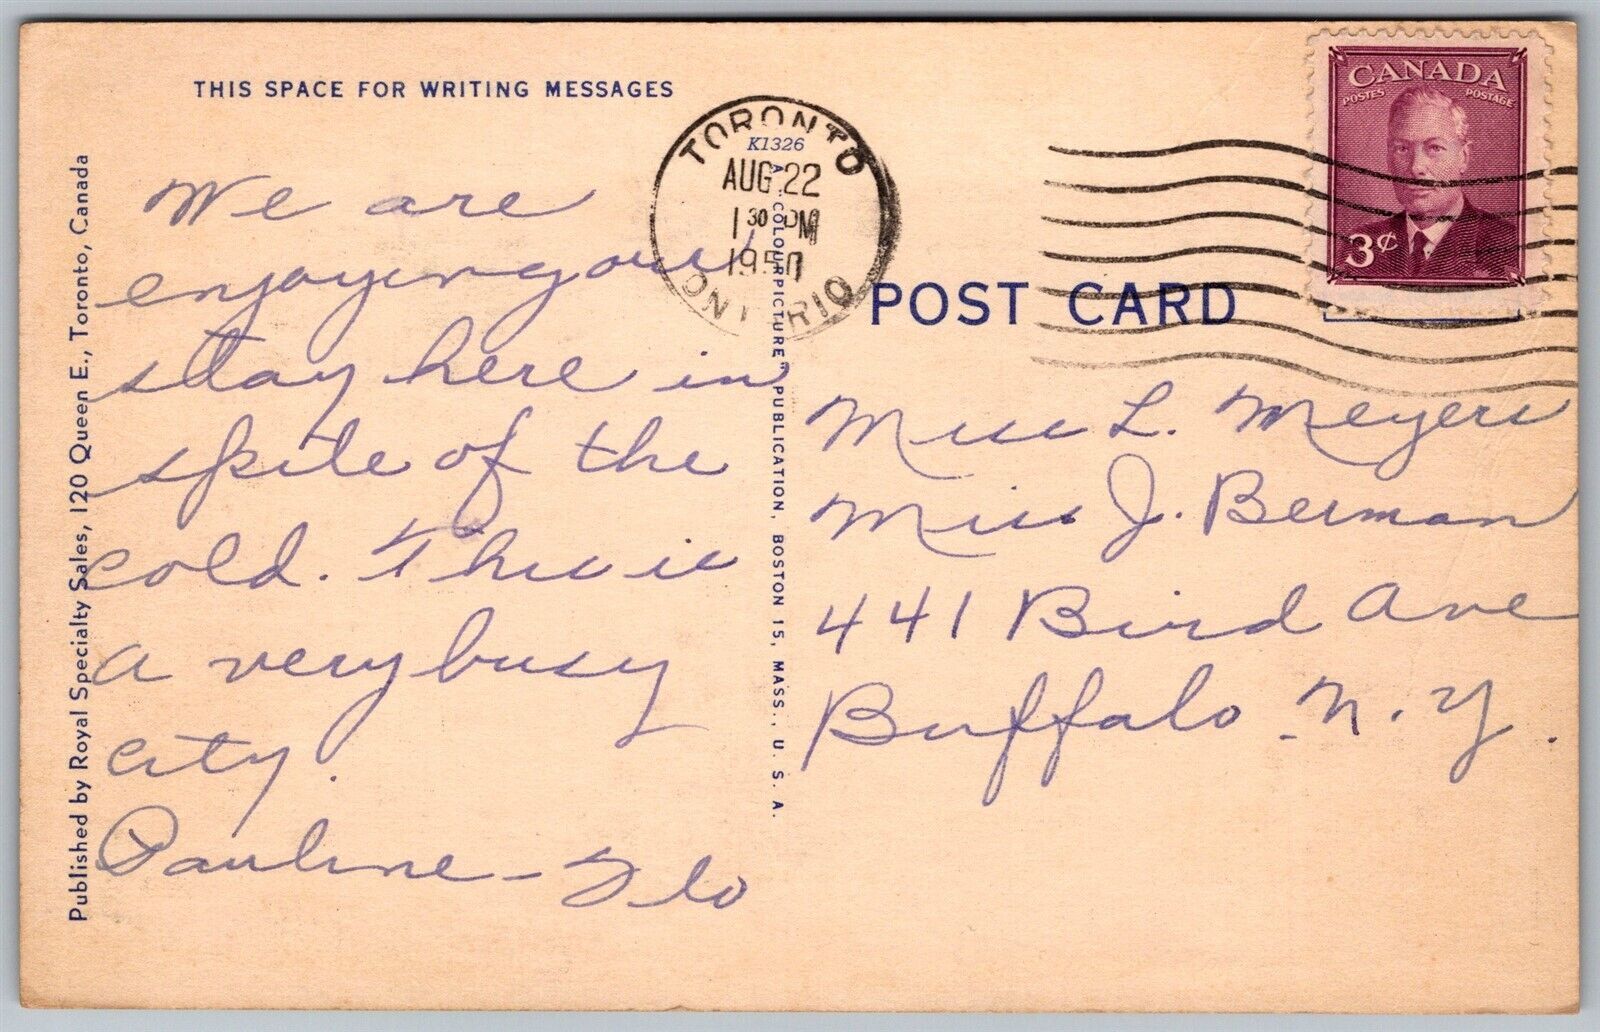 THIS SPACE FOR WRITING MESSAGES
We are
enjoying our
stay here in
spite of the
cold. This is
a very busy
city.
Pauline - Flo
Published by Royal Specialty Sales, 120 Queen E., Toronto, Canada
K1326
A "COLOURPICTURE" PUBLICATION, BOSTON 15, MASS., U. S. A.
TORONTO
AUG 22
1 30 PM
1950
ONTARIO
CANADA
POSTES POSTAGE
3¢
POST CARD
Miss L. Meyers
Miss J. Berman
441 Bird Ave
Buffalo N.Y.